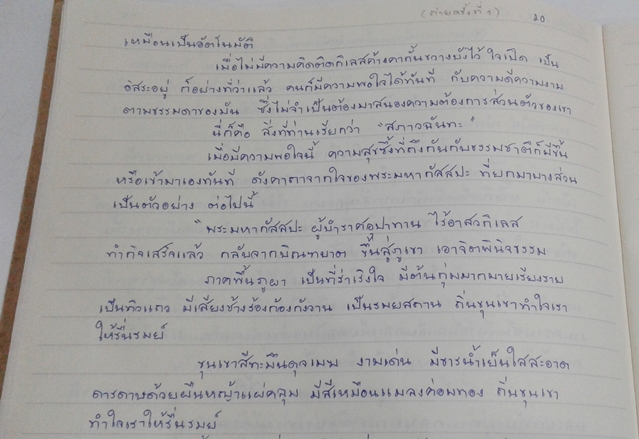 (ถ่ายครั้งที่ 1)
20
เหมือนเป็นอัตโนมัติ
เมื่อไม่มีความคิดติดกิเลสค้างคากั้นขวางบังไว้ ใจเปิด เป็น
อิสระอยู่ ก็อย่างที่ว่าแล้ว คนก็มีความพอใจได้ทันที กับความดีความงาม
ตามธรรมดาของมัน ซึ่งไม่จำเป็นต้องมาสนองความต้องการส่วนตัวของเขา
นี่ก็คือ สิ่งที่ท่านเรียกว่า "สภาวฉันทะ"
เมื่อมีความพอใจนี้ ความสุขซึ้งที่ถึงกันกับธรรมชาติก็มีขึ้น
หรือเข้ามาเองทันที ดังคาถาจากใจของพระมหากัสสปะ ที่ยกมาบางส่วน
เป็นตัวอย่าง ต่อไปนี้
"พระมหากัสสปะ ผู้บำราศอุปาทาน ไร้อาสวกิเลส
ทำกิจเสร็จแล้ว กลับจากบิณฑบาต ขึ้นสู่ภูเขา เอาจิตพินิจธรรม
ภาคพื้นภูผา เป็นที่ร่าเริงใจ มีต้นกุ่มมากมายเรียงราย
เป็นทิวแถว มีเสียงช้างร้องก้องกังวาน เป็นรมยสถาน ถิ่นขุนเขาทำใจเรา
ให้รื่นรมย์
ขุนเขาสีทะมึนดุจเมฆ งามเด่น มีธารน้ำเย็นใสสะอาด
ดารดาษด้วยผืนหญ้าแผ่คลุม มีสีเหมือนแมลงค่อมทอง ถิ่นขุนเขา
ทำใจเราให้รื่นรมย์